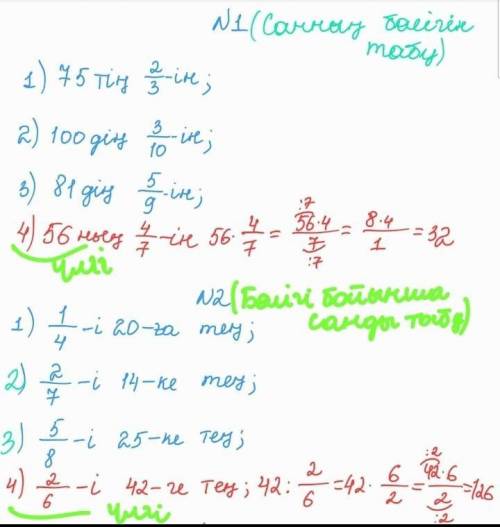 N1 (Санның бөлігін
табу)
1) 75 тің 2/3-ін;
2) 100 дің 3/10-ін;
3) 81 дің 5/9-ін;
4) 56 ның 4/7-ін 56·4/7 = :7 56·4/7 :7 = 8·4/1 = 32
үлгі
N2 (Бөлігі бойынша
санды табу)
1) 1/4-і 20-ға тең;
2) 2/7-і 14-ке тең;
3) 5/8-і 25-ке тең;
4) 2/6-і 42-ге тең; 42:2/6=42·6/2= :2 42·6/2 :2 =126
үлгі